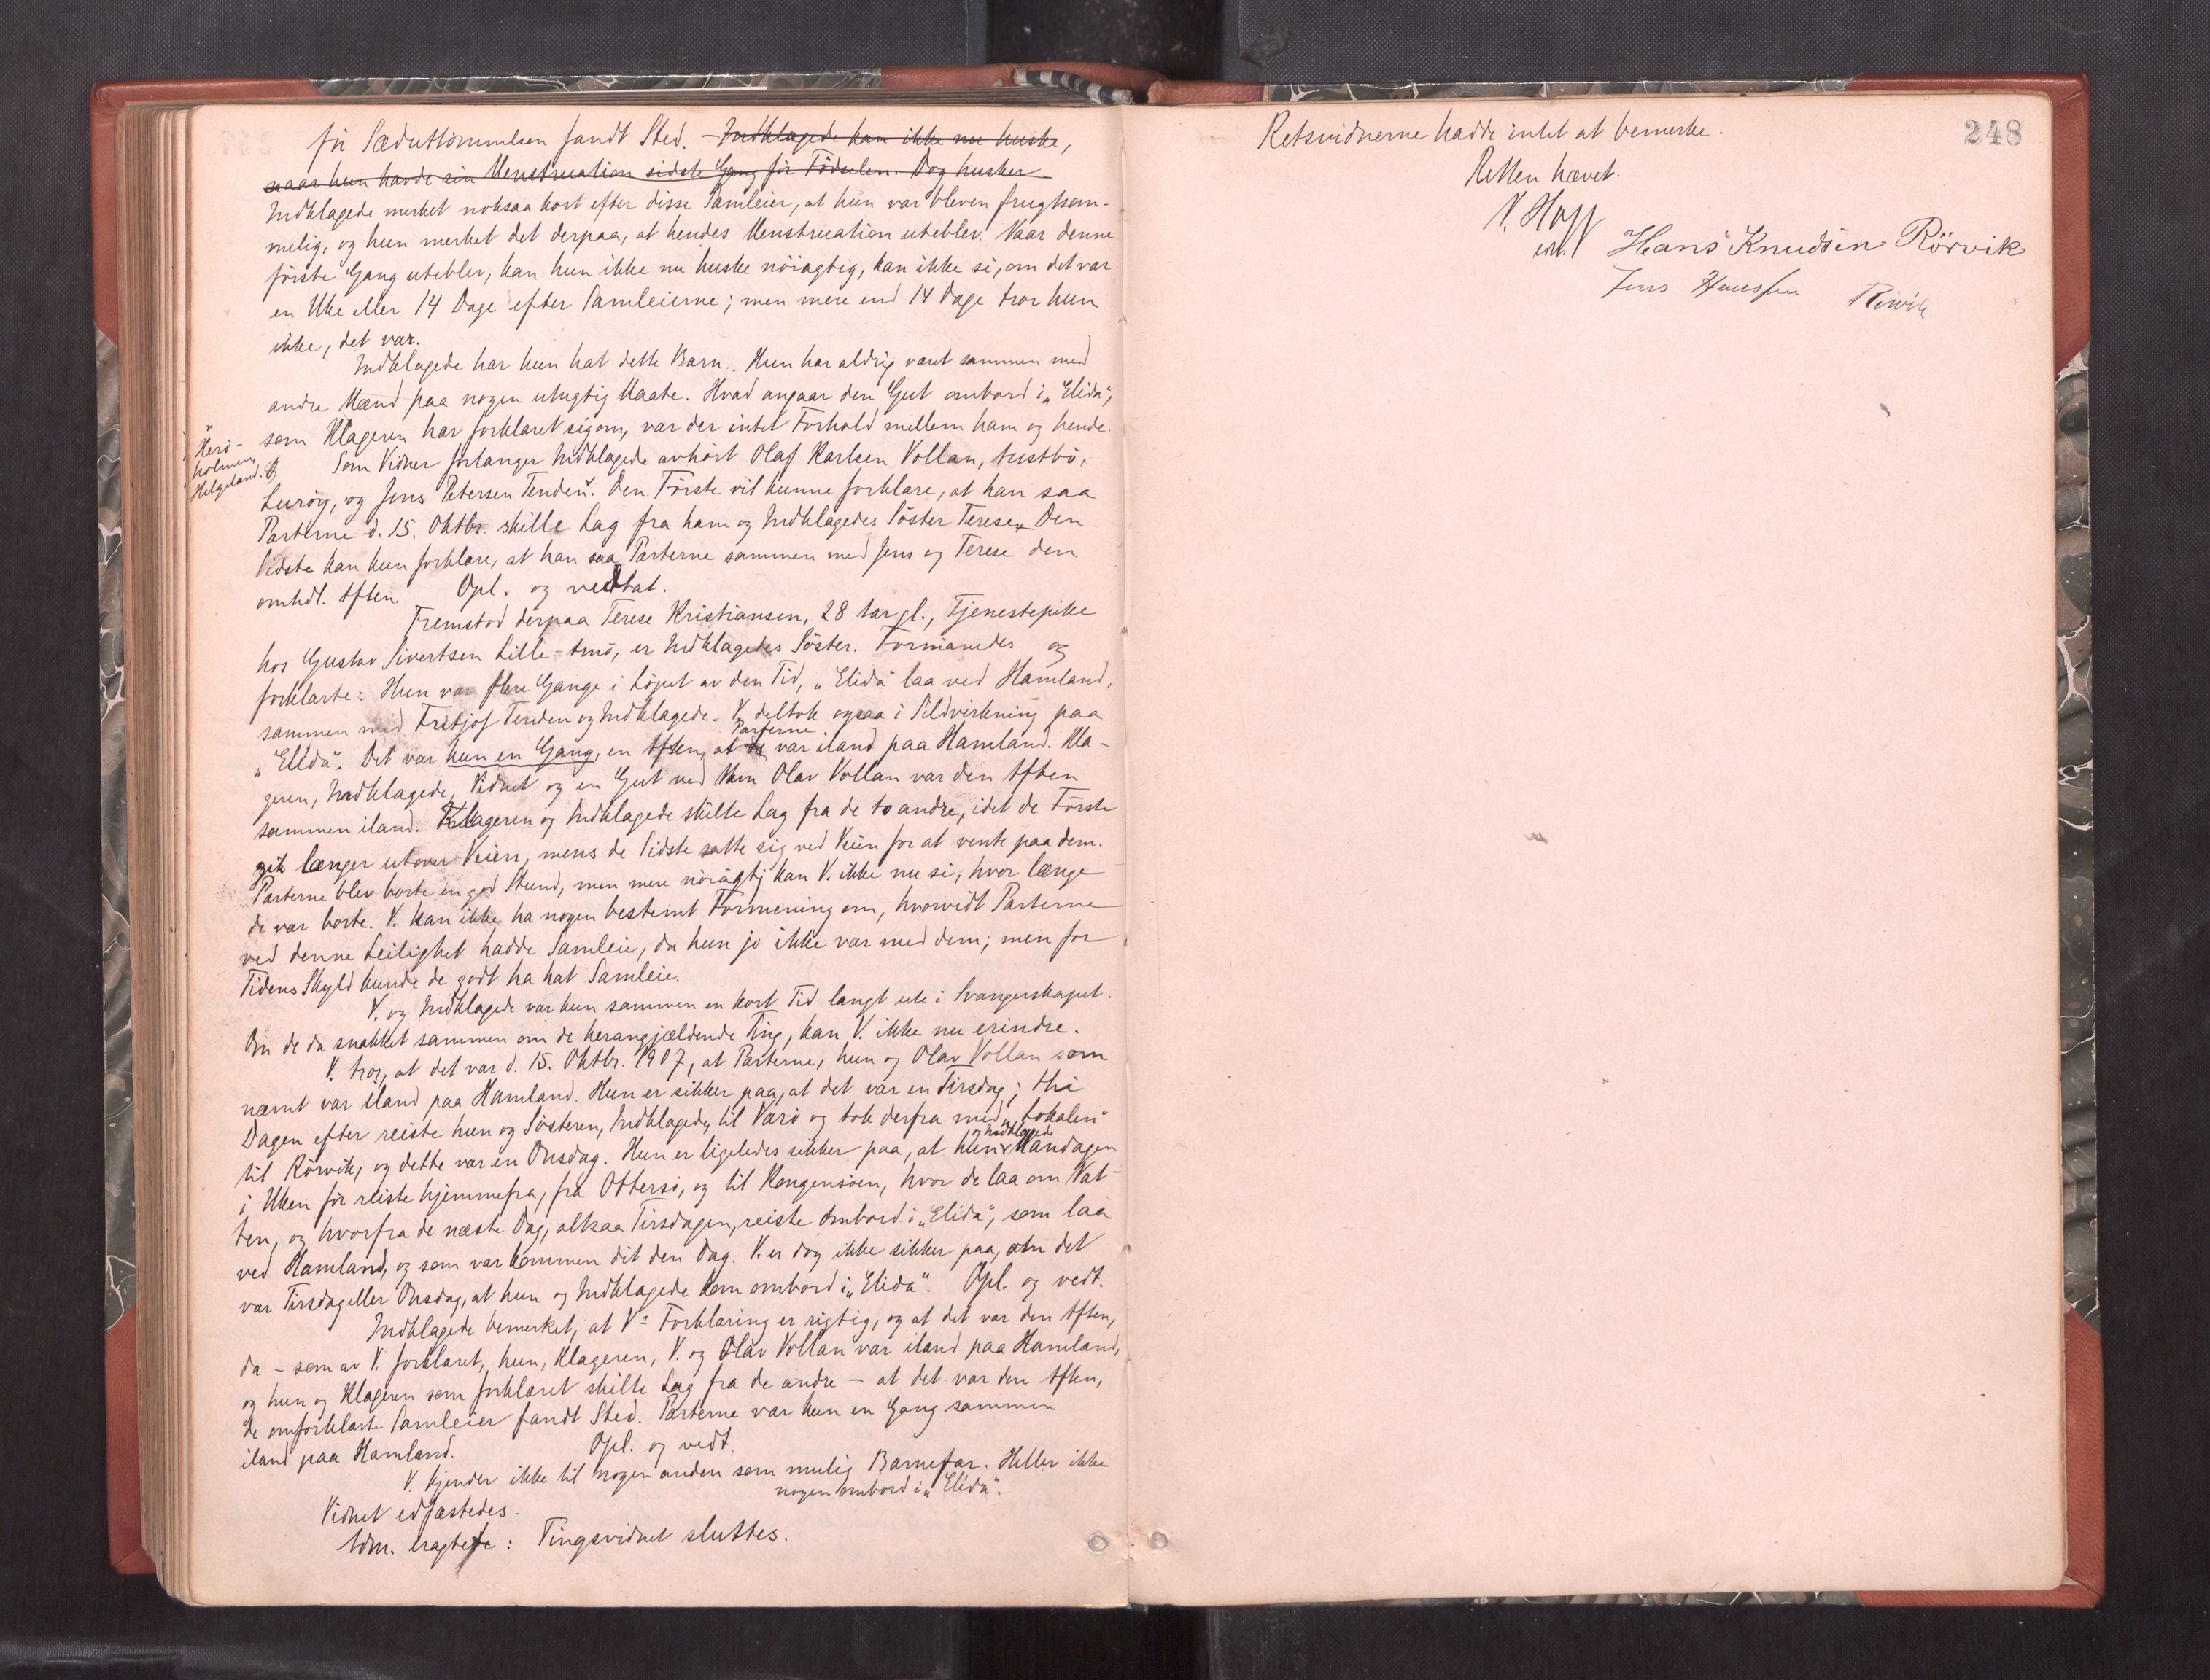 før Sæduttømmelsen fandt Sted. – Indklagede kan ikke nu huske,
naar hun havde sin Menstruation sidste Gang før Fødselen. Dog husker
Indklagede merket noksaa kort efter disse Samleier, at hun var bleven frugtsom-
melig, og hun merket det derpaa, at hendes Menstruation uteblev. Naar denne
første Gang uteblev, kan hun ikke nu huske nöiagtig, kan ikke si, om det var
en Uke eller 14 Dage efter Samleierne; men mere end 14 Dage tror hun
ikke, det var.
Indklagede har kun hat dette Barn. Hun har aldrig været sammen med
andre Mænd paa nogen utugtig Maate. Hvad angaar den Gut ombord i „Elida",
som Klageren har forklaret sig om, var der intet Forhold mellem ham og hende.
Som Vidner forlanger Indklagede avhört Olaf Karlsen Vollan,
Herö-
holmen,
Helgeland.
Luröy, og Jens Petersen Tenden. Den Förste vil kunne forklare, at han saa
Parterne d. 15. Oktbr. skille Lag fra ham og Indklagedes Söster Terese. Den
Sidste kan kun forklare, at han saa Parterne sammen med Jens og Terese den
omhdl. Aften. Opl. og vedtat.
Fremstod derpaa Terese Kristiansen, 28 Aar gl., Tjenestepike
hos Gustav Sivertsen Lille-Amö, er Indklagedes Söster. Formanedes og
forklarte: Hun var flere Gange i Löpet av den Tid, „Elida" laa ved Hamland,
sammen med Fritjof Tenden og Indklagede. V. deltok ogsaa i Sildvirkning paa
„Elida". Det var kun en Gang, en Aften, at Parterne var iland paa Hamland. Kla-
geren, Indklagede, Vidnet og en Gut ved Navn Olav Vollan var den Aften
sammen iland. Klageren og Indklagede skilte Lag fra de to andre, idet de Förste
gik længer utover Veien, mens de Sidste satte sig ved Veien for at vente paa dem.
Parterne blev borte en god Stund, men mere nöiagtig kan V. ikke nu si, hvor længe
de var borte. V. kan ikke ha nogen bestemt Formening om, hvorvidt Parterne
ved denne Leilighet hadde Samleie, da hun jo ikke var med dem; men for
Tidens Skyld kunde de godt ha hat Samleie.
V. og Indklagede var kun sammen en kort Tid langt ute i Svangerskapet.
Om de da snakket sammen om de herangjældende Ting, kan V. ikke nu erindre.
V. tror, at det var d. 15. Oktbr. 1907, at Parterne, hun og Olav Vollan som
nævnt var iland paa Hamland. Hun er sikker paa, at det var en Tirsdag; thi
Dagen efter reiste hun og Sösteren, Indklagede, til Værö og tok derfra med „Lokalen"
til Rörvik, og dette var en Onsdag. Hun er ligeledes sikker paa, at hun og Indklagede Mandagen
i Uken før reiste hjemmefra, fra Ottersö, og til Kongensöen, hvor de laa om Nat-
ten, og hvorfra de næste Dag, altsaa Tirsdagen, reiste ombord i „Elida", som laa
ved Hamland, og som var kommen dit den Dag. V. er dog ikke sikker paa, om det
var Tirsdag eller Onsdag, at hun og Indklagede kom ombord i „Elida". Opl. og vedt.
Indklagede bemerket, at V.s Forklaring er rigtig, og at det var den Aften,
da – som av V. forklaret, hun, Klageren, V. og Olav Vollan var iland paa Hamland,
og hun og Klageren som forklaret skilte Lag fra de andre – at det var den Aften,
de omforklarte Samleier fandt Sted. Parterne var kun en Gang sammen
iland paa Hamland. Opl. og vedt.
V. kjender ikke til nogen anden som mulig Barnefar. Heller ikke
nogen ombord i „Elida".
Vidnet edfæstedes.
Adm. eragtede: Tingsvidnet sluttes.
248
Retsvidnerne hadde intet at bemerke.
Retten hævet.
V. Hoff
Hans Knudsen Rörvik
Jens Hanssen Rörvik